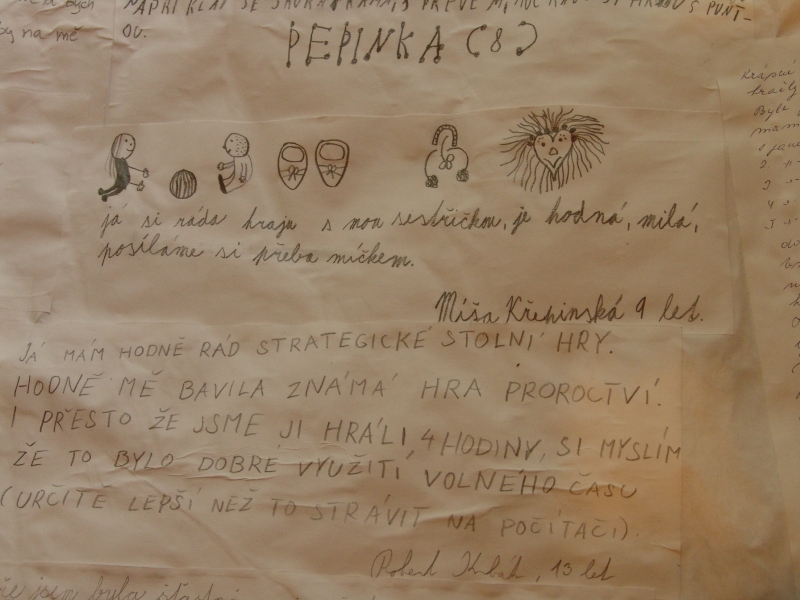 by na mě
OU.
PEPINKA (8)
já si ráda hraju s mou sestřičkou, je hodná, milá,
posíláme si přeba míčkem.
Míša Křepinská 9 let.
JÁ MÁM HODNĚ RÁD STRATEGICKÉ STOLNÍ HRY.
HODNĚ MĚ BAVILA ZNÁMÁ HRA PROROCTVÍ.
I PŘESTO ŽE JSME JI HRÁLI 4 HODINY, SI MYSLÍM
ŽE TO BYLO DOBRÉ VYUŽITÍ VOLNÉHO ČASU
(URČITĚ LEPŠÍ NEŽ TO STRÁVIT NA POČÍTAČI).
Robert, 13 let
jsem byla šťastná